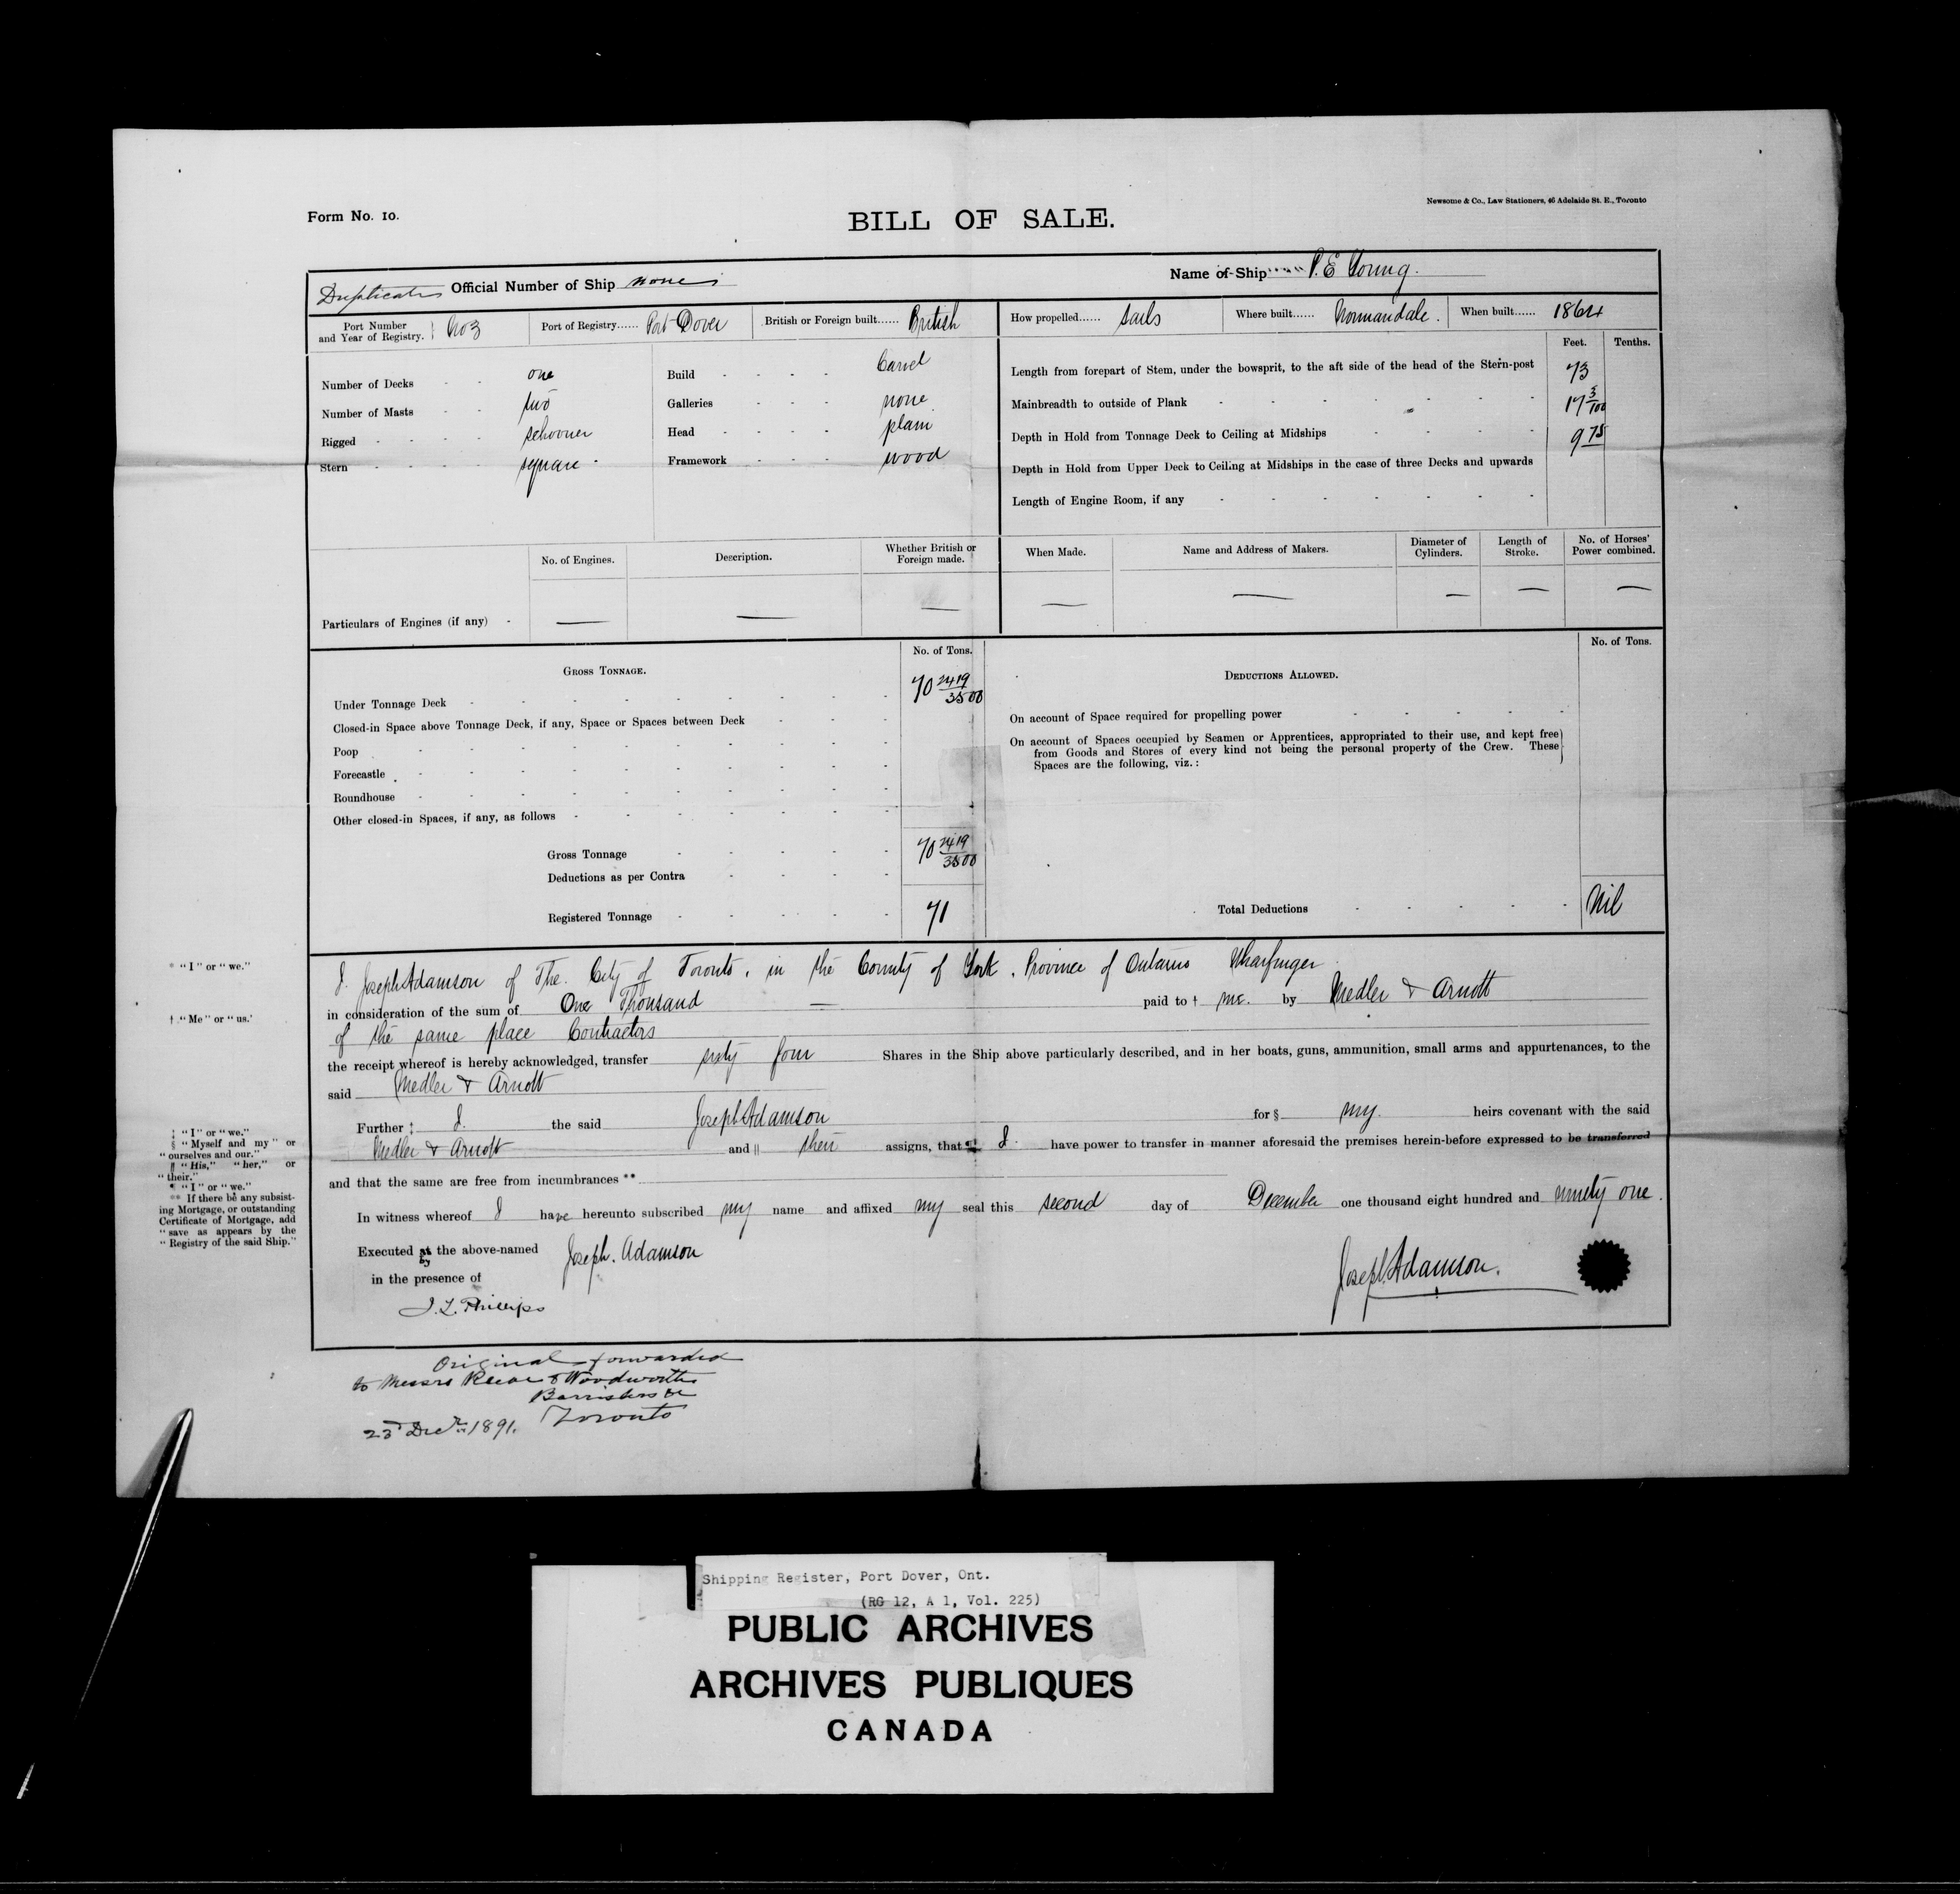 Form No. 10.
BILL OF SALE.
Newsome & Co., Law Stationers, 46 Adelaide St. E., Toronto
Duplicate Official Number of Ship none
Name of Ship P. E Young.
Port Number and Year of Registry. No 3
Port of Registry...... Port Dover
British or Foreign built...... British
How propelled...... Sails
Where built...... Normandale.
When built...... 1864
Feet. Tenths.
Number of Decks - - one
Number of Masts - - two
Rigged - - - - schooner
Stern - - - - square -
Build - - - - Carvel
Galleries - - - none
Head - - - - plain
Framework - - - wood
Length from forepart of Stem, under the bowsprit, to the aft side of the head of the Stern-post 73
Mainbreadth to outside of Plank 17 3/100
Depth in Hold from Tonnage Deck to Ceiling at Midships 9 75
Depth in Hold from Upper Deck to Ceiling at Midships in the case of three Decks and upwards
Length of Engine Room, if any
No. of Engines. Description. Whether British or Foreign made. When Made. Name and Address of Makers. Diameter of Cylinders. Length of Stroke. No. of Horses' Power combined.
Particulars of Engines (if any) - — — — — — — — —
GROSS TONNAGE. No. of Tons.
Under Tonnage Deck 70 2419/3500
Closed-in Space above Tonnage Deck, if any, Space or Spaces between Deck
Poop
Forecastle
Roundhouse
Other closed-in Spaces, if any, as follows
Gross Tonnage 70 2419/3500
Deductions as per Contra
Registered Tonnage 71
DEDUCTIONS ALLOWED. No. of Tons.
On account of Space required for propelling power
On account of Spaces occupied by Seamen or Apprentices, appropriated to their use, and kept free
from Goods and Stores of every kind not being the personal property of the Crew. These
Spaces are the following, viz.:
Total Deductions Nil
* "I" or "we."
† "Me" or "us.'
‡ "I" or "we."
§ "Myself and my" or
"ourselves and our."
|| "His," "her," or
"their."
¶ "I" or "we."
** If there be any subsist-
ing Mortgage, or outstanding
Certificate of Mortgage, add
"save as appears by the
"Registry of the said Ship."
I. Joseph Adamson of The. City of Toronto, in the County of York, Province of Ontario Wharfinger
in consideration of the sum of One Thousand — paid to † me. by Medler & Arnott
of the same place Contractors
the receipt whereof is hereby acknowledged, transfer sixty four Shares in the Ship above particularly described, and in her boats, guns, ammunition, small arms and appurtenances, to the
said Medler & Arnott
Further ‡ I. the said Joseph Adamson for § my. heirs covenant with the said
Medler & Arnott and || their assigns, that ¶ I have power to transfer in manner aforesaid the premises herein-before expressed to be transferred
and that the same are free from incumbrances **
In witness whereof I have hereunto subscribed my name and affixed my seal this second day of December one thousand eight hundred and ninety one.
Executed at by the above-named Joseph. Adamson
in the presence of
J. L. Phillips
Joseph. Adamson.
Original forwarded
to Messrs & Woodworth
Barristers &c
Toronto
23d Decr. 1891.
Shipping Register, Port Dover, Ont.
(RG 12, A 1, Vol. 225)
PUBLIC ARCHIVES
ARCHIVES PUBLIQUES
CANADA